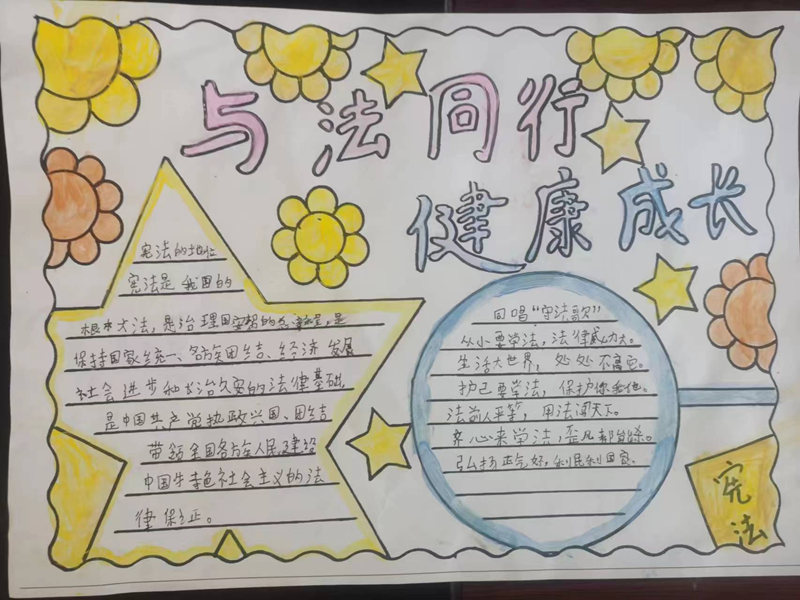 与法同行
健康成长
宪法的地位
宪法是我国的
根本大法，是治理国家的总章程，是
保持国家统一、各族团结、经济发展
社会进步和长治久安的法律基础
是中国共产党执政兴国、团结
带领全国各族人民建设
中国特色社会主义的法
律保证。
同唱“守法歌”
从小要学法，法律威力大。
生活大世界，处处不离它。
护己要学法，保护你我他。
法前人平等，用法闯天下。
齐心来学法，歪风都自杀。
弘扬正气好，利民利国家。
宪法